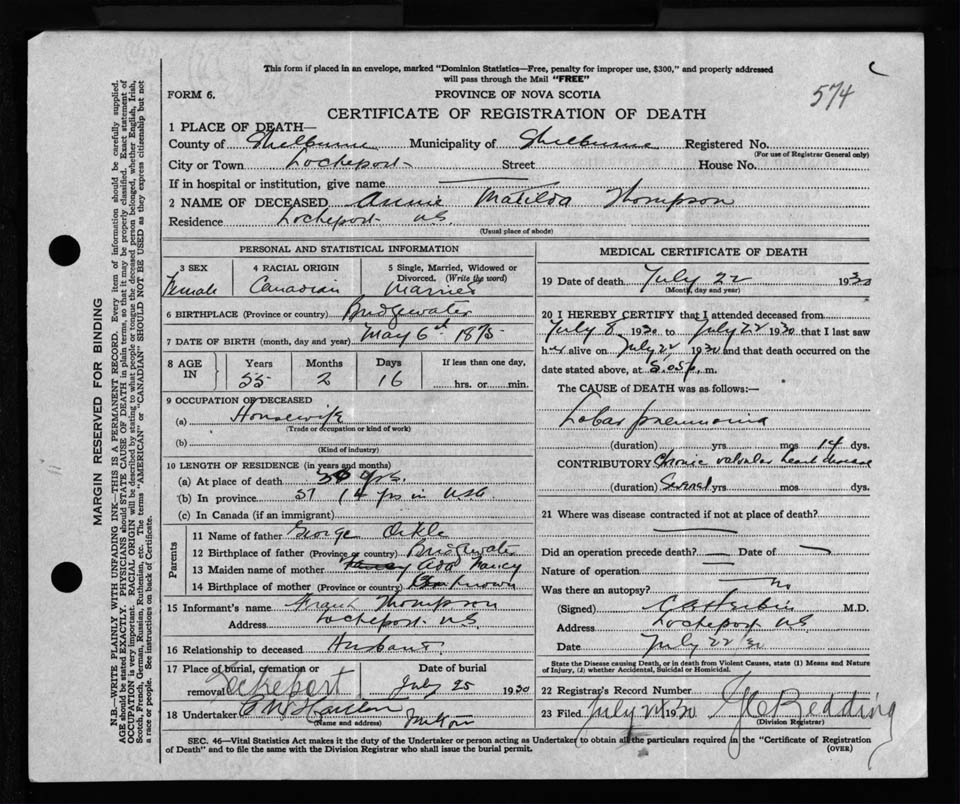 This form if placed in an envelope, marked "Dominion Statistics—Free, penalty for improper use, $300," and properly addressed
will pass through the Mail "FREE"
574
FORM 6.
PROVINCE OF NOVA SCOTIA
CERTIFICATE OF REGISTRATION OF DEATH
1 PLACE OF DEATH—
County of Shelburne Municipality of Shelburne Registered No.
(For use of Registrar General only)
City or Town Lockeport Street House No.
If in hospital or institution, give name
2 NAME OF DECEASED Annie Matilda Thompson
Residence Lockeport N.S.
(Usual place of abode)
PERSONAL AND STATISTICAL INFORMATION
3 SEX
Female
4 RACIAL ORIGIN
Canadian
5 Single, Married, Widowed or
Divorced. (Write the word)
Married
6 BIRTHPLACE (Province or country) Bridgewater
7 DATE OF BIRTH (month, day and year) May 6th 1875
8 AGE IN
Years Months Days If less than one day,
55 2 16 hrs. or min.
9 OCCUPATION OF DECEASED
(a) Housewife
(Trade or occupation or kind of work)
(b)
(Kind of industry)
10 LENGTH OF RESIDENCE (in years and months)
(a) At place of death yrs.
(b) In province 37 yrs in
(c) In Canada (if an immigrant)
Parents
11 Name of father George Oikle
12 Birthplace of father (Province or country) Bridgewater
13 Maiden name of mother Nancy
14 Birthplace of mother (Province or country) known
15 Informant's name Frank Thompson
Address Lockeport N.S.
16 Relationship to deceased Husband
17 Place of burial, cremation or
removal Lockeport
Date of burial
July 25 1930
18 Undertaker
(Name and address) Milton
MEDICAL CERTIFICATE OF DEATH
19 Date of death July 22 1930
(Month, day and year)
20 I HEREBY CERTIFY that I attended deceased from
July 8 1930 to July 22 1930 that I last saw
her alive on July 22 1930 and that death occurred on the
date stated above, at p.m.
The CAUSE of DEATH was as follows:—
Lobar pneumonia
(duration) yrs mos 14 dys.
CONTRIBUTORY Chronic valvular heart disease
(duration) Several yrs mos dys.
21 Where was disease contracted if not at place of death?
Did an operation precede death? Date of
Nature of operation
Was there an autopsy? No
(Signed) M.D.
Address Lockeport N.S.
Date July 22 30
State the Disease causing Death, or in death from Violent Causes, state (1) Means and Nature
of Injury, (2) whether Accidental, Suicidal or Homicidal.
22 Registrar's Record Number
23 Filed July 1930 Redding
(Division Registrar)
SEC. 46—Vital Statistics Act makes it the duty of the Undertaker or person acting as Undertaker to obtain all the particulars required in the "Certificate of Registration
of Death" and to file the same with the Division Registrar who shall issue the burial permit. (OVER)
MARGIN RESERVED FOR BINDING
N.B.—WRITE PLAINLY WITH UNFADING INK—THIS IS A PERMANENT RECORD. Every item of information should be carefully supplied.
AGE should be stated EXACTLY. PHYSICIANS should STATE CAUSE OF DEATH in plain terms, so that it may be properly classified. Exact statement of
OCCUPATION is very important. RACIAL ORIGIN will be described by stating to what people or tongue the deceased person belonged, whether English, Irish,
Scotch, French, German, Russian, Ruthenian, etc. The terms "AMERICAN" or "CANADIAN" SHOULD NOT BE USED as they express citizenship but not
a race or people. See instructions on back of Certificate.